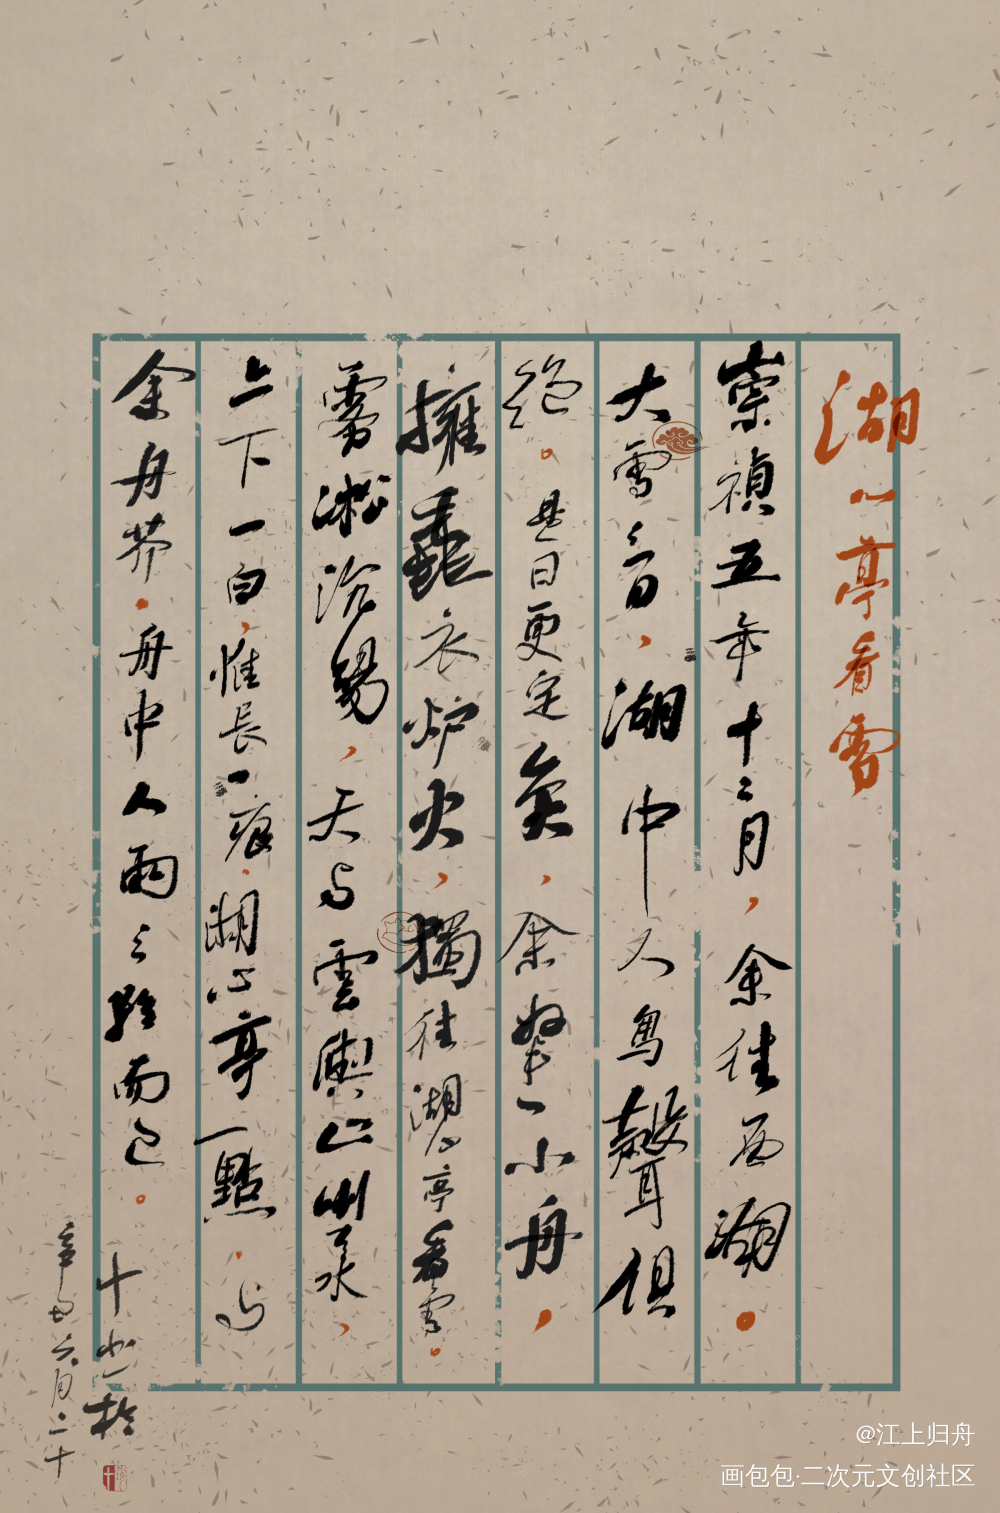 湖心亭看雪
崇禎五年十二月，余往西湖。
大雪三日，湖中人鳥聲俱
絕。是日更定矣，余拏一小舟，
擁毳衣炉火，獨往湖心亭看雪。
雾凇沆碭，天与雲與山與水，
上下一白，惟長一痕、湖心亭一點、与
余舟芥。舟中人兩三粒而已。
辛丑六月二十
@江上归舟
画包包·二次元文创社区